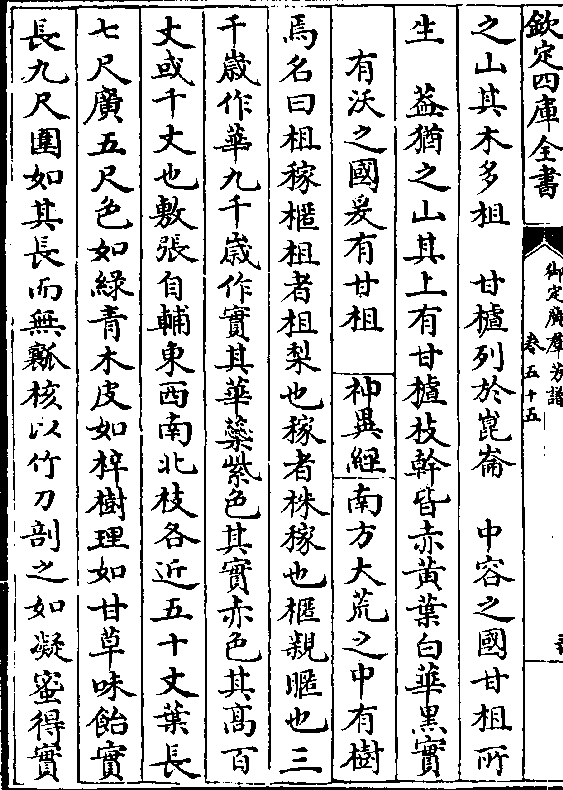 欽定四庫全書
御定廣羣芳譜
卷五十五
之山其木多柤　甘櫨列於崑崙　中容之國甘柤所
生　葢猶之山其上有甘櫨枝幹皆赤黃葉白華黑實
有沃之國爰有甘柤　神異經南方大荒之中有樹
焉名曰柤稼㮋柤者柤梨也稼者株稼也㮋親㬂也三
千歲作華九千歲作實其華蘂紫色其實赤色其髙百
丈或千丈也敷張自輔東西南北枝各近五十丈葉長
七尺廣五尺色如綠青木皮如梓樹理如甘草味飴實
長九尺圍如其長而無瓤核以竹刀剖之如凝蜜得實